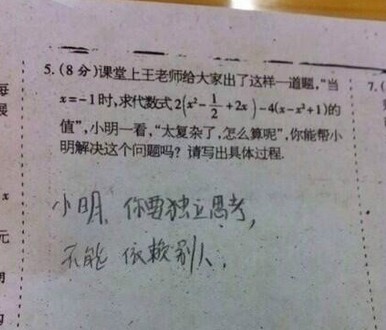 5.(8分)课堂上王老师给大家出了这样一道题,“当
x=-1时,求代数式2(x²-1/2+2x)-4(x-x²+1)的
值”,小明一看,“太复杂了,怎么算呢”,你能帮小
明解决这个问题吗?请写出具体过程.
小明、你要独立思考,
不能 依赖别人.
7.(
每
x
元